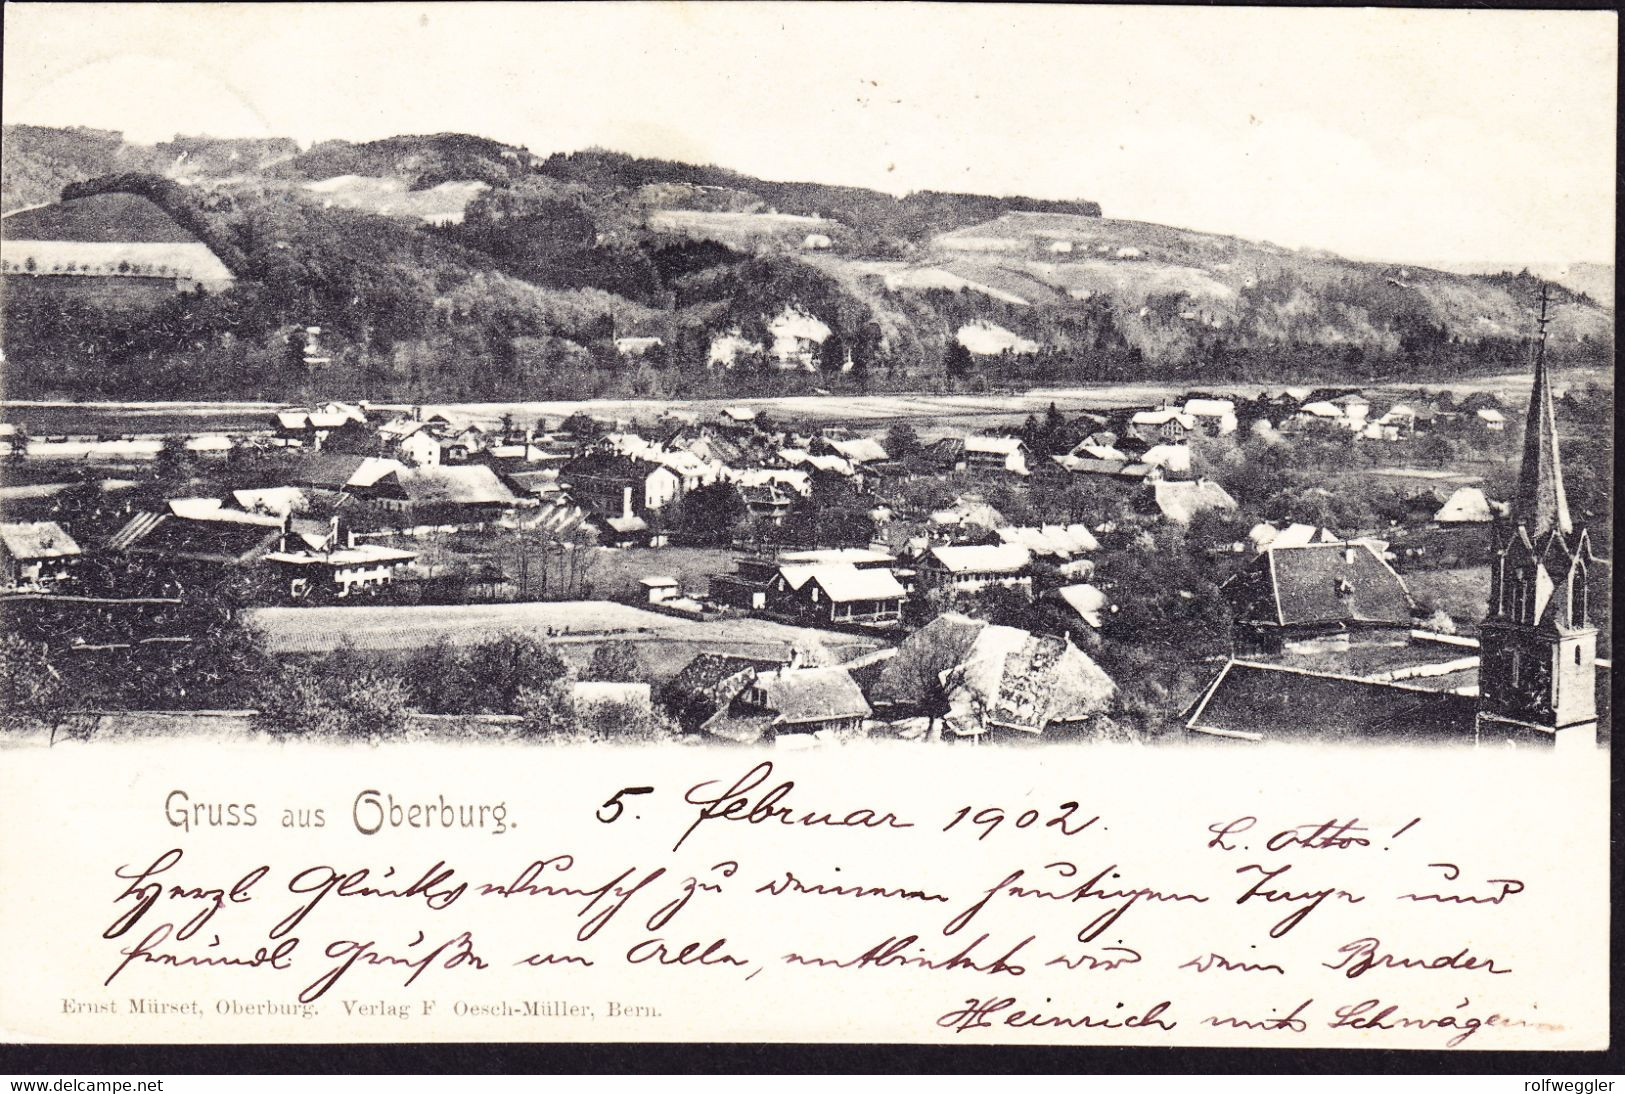 Gruss aus Oberburg.
5. Februar 1902.
L. Otto!
Herzl. Glückswunsch zu deinem heutigen Tage und
freundl. Grüße an Alle, entbietet dir dein Bruder
Heinrich mit Schwägerin
Ernst Mürset, Oberburg. Verlag F Oesch-Müller, Bern.
delcampe.net
rolfweggler